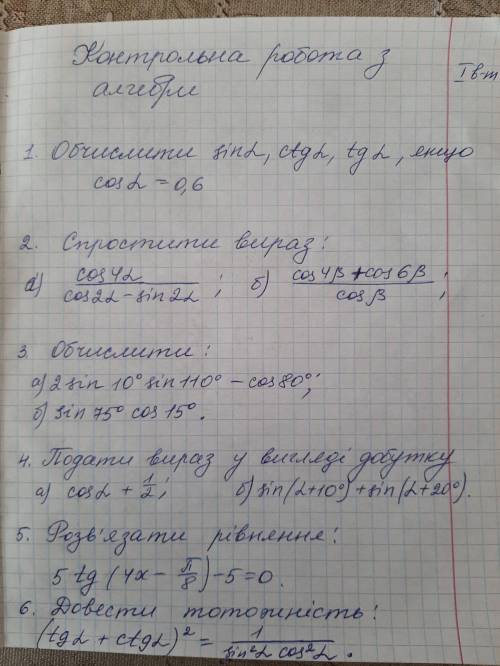 Контрольна робота з
I в-т
алгебри
1. Обчислити sinα, ctgα, tgα, якщо
cosα = 0,6
2. Спростити вираз:
а) cos4α / (cos2α - sin2α) ; б) (cos4β + cos6β) / cosβ ;
3. Обчислити:
а) 2 sin 10° sin 110° - cos 80°;
б) sin 75° cos 15°.
4. Подати вираз у вигляді добутку
а) cosα + 1/2; б) sin(α+10°) + sin(α+20°).
5. Розв'язати рівняння:
5 tg (4x - π/8) - 5 = 0.
6. Довести тотожність:
(tgα + ctgα)² = 1 / (sin²α cos²α) .